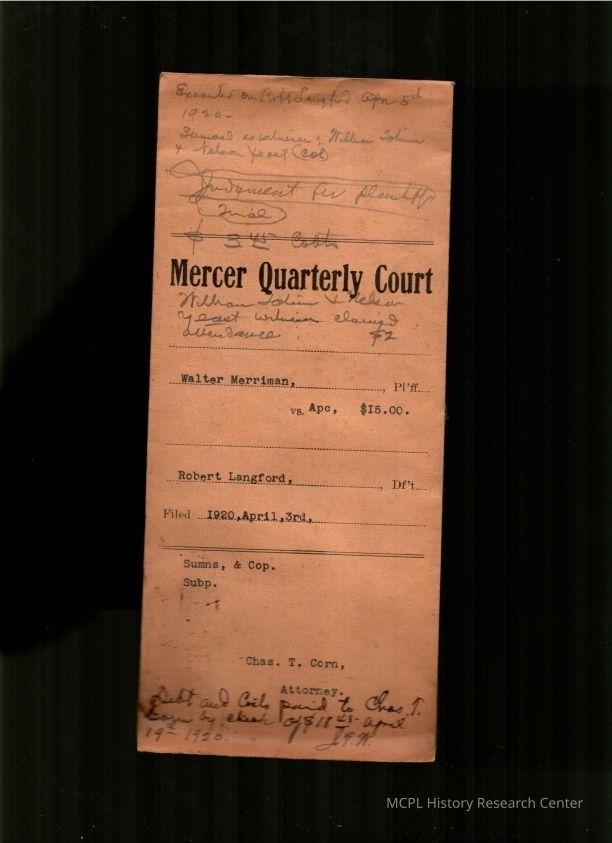 Executed on Robt Langford Apr 5th
1920-
Sumond as witnesses: William Tobin
& Nelson Yeast (Col)
Judgment for plaintiff
$ 3.45 Costs
Mercer Quarterly Court
William Tobin & Nelson
Yeast witnesses claimed
attendance $2
Walter Merriman, , Pl'ff.
vs. Apc, $15.00.
Robert Langford, , Df't.
Filed 1920,April,3rd,
Sumns, & Cop.
Subp.
Chas. T. Corn,
Attorney.
Debt and Costs paid to Chas. T.
Corn by check of $18.45 April
19- 1920.
MCPL History Research Center